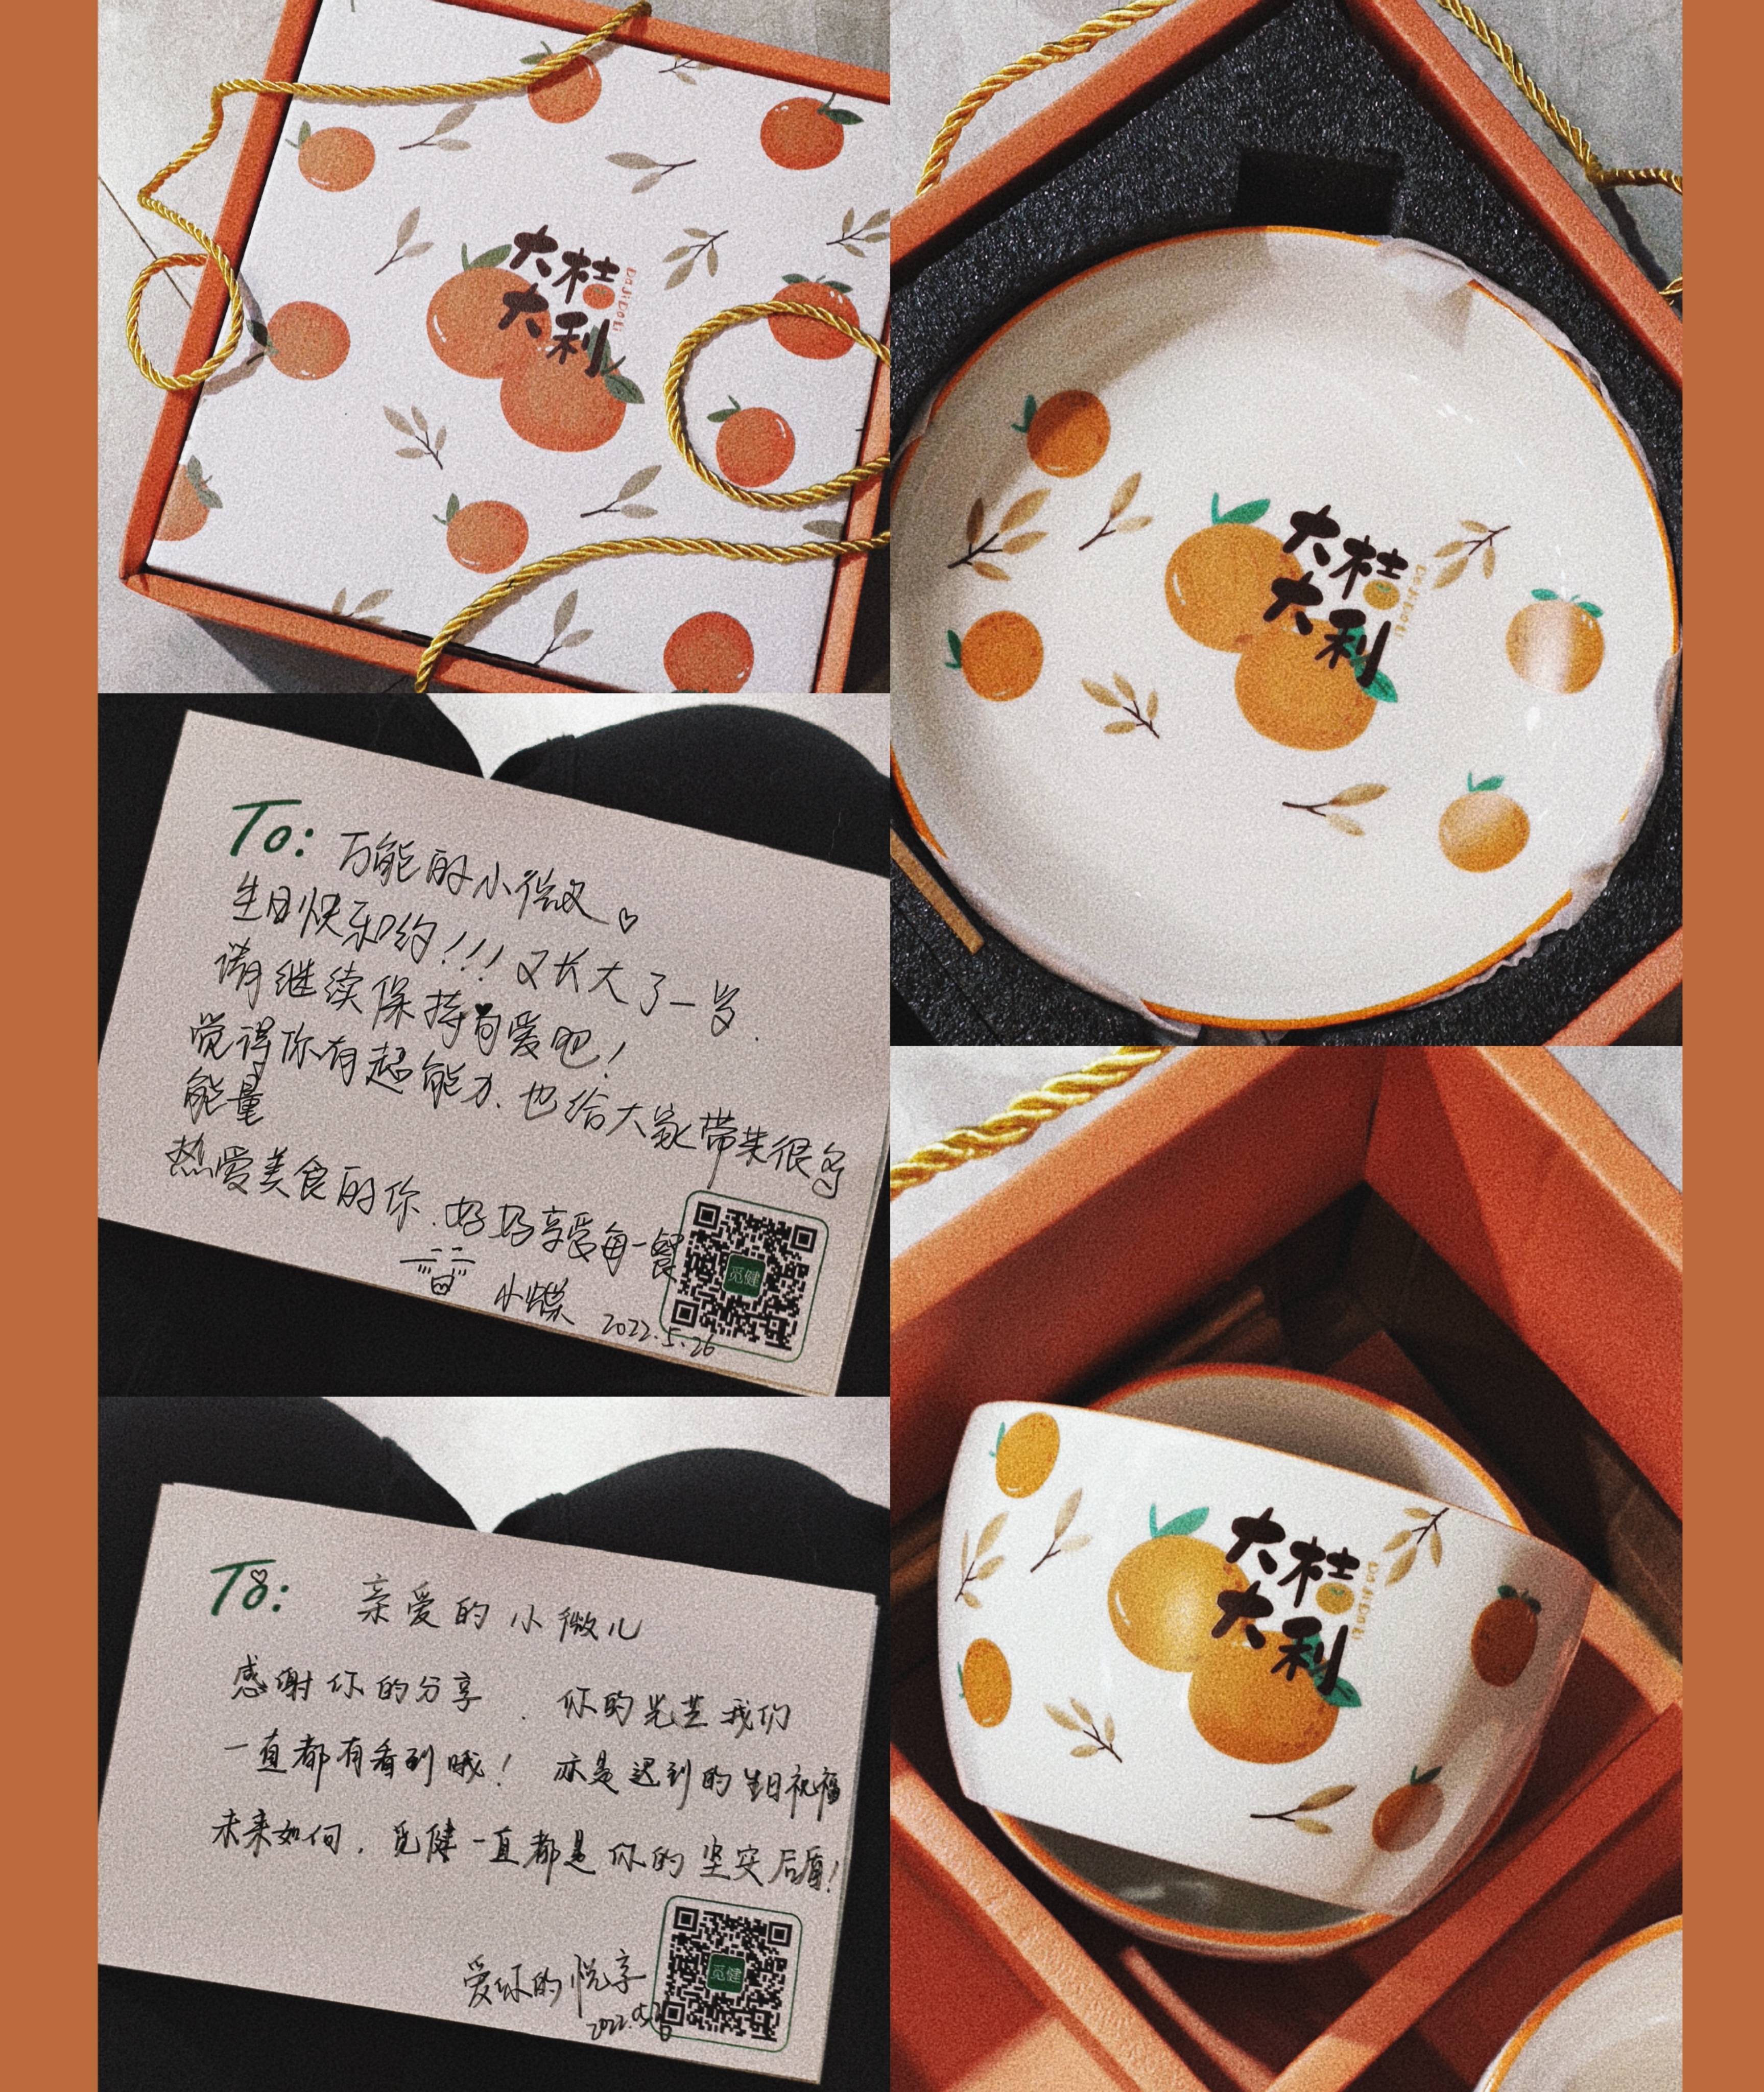 大桔
大利
DaJiDaLi
To: 万能的小微
生日快乐哟!!! 又长大了一岁.
请继续保持可爱吧!
觉得你有超能力.也给大家带来很多
能量
热爱美食的你.好好享受每一餐
2022.5.26
觅健
To: 亲爱的小微儿
感谢你的分享. 你的光芒我们
一直都有看到哦! 亦是迟到的生日祝福
未来如何,觅健一直都是你的坚实后盾!
爱你的悦享
觅健
大桔
大利
DaJiDaLi
大桔
大利
DaJiDaLi